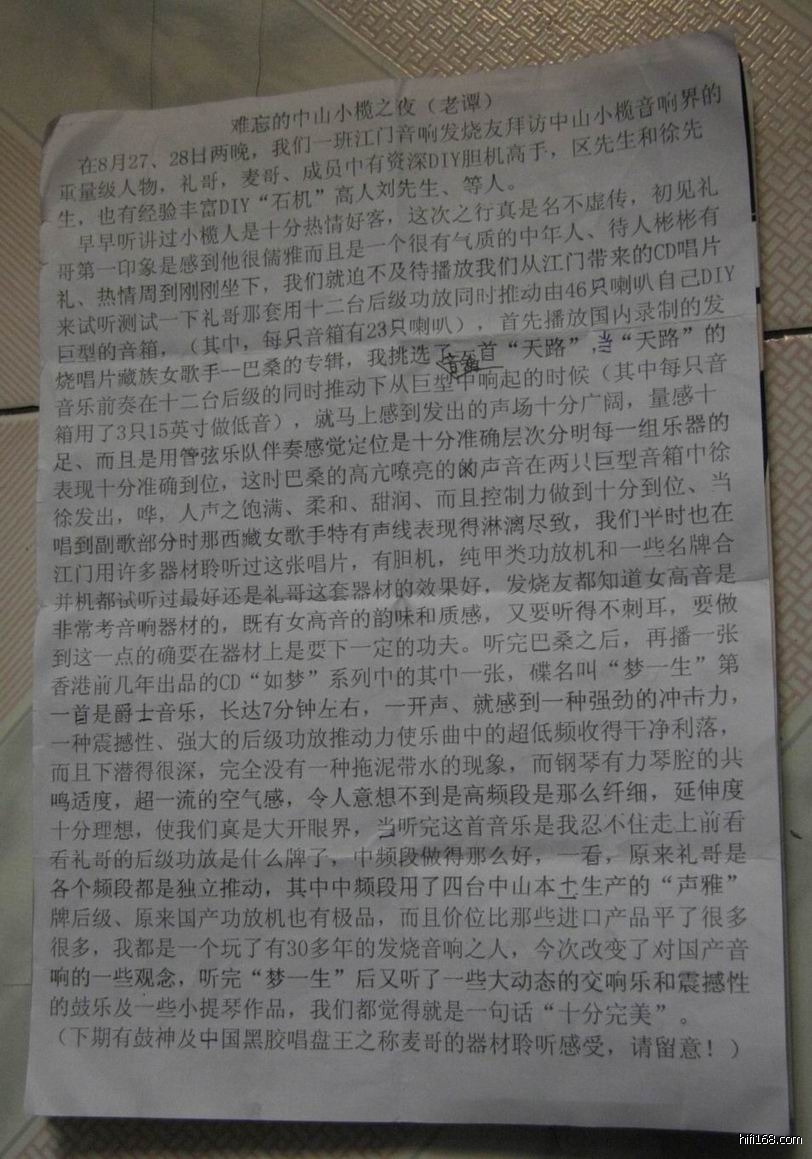 难忘的中山小榄之夜（老谭）
在8月27、28日两晚，我们一班江门音响发烧友拜访中山小榄音响界的
重量级人物，礼哥，麦哥、成员中有资深DIY胆机高手，区先生和徐先
生，也有经验丰富DIY“石机”高人刘先生、等人。
早早听讲过小榄人是十分热情好客，这次之行真是名不虚传，初见礼
哥第一印象是感到他很儒雅而且是一个很有气质的中年人、待人彬彬有
礼、热情周到刚刚坐下，我们就迫不及待播放我们从江门带来的CD唱片
来试听测试一下礼哥那套用十二台后级功放同时推动由46只喇叭自己DIY
巨型的音箱，（其中，每只音箱有23只喇叭），首先播放国内录制的发
烧唱片藏族女歌手--巴桑的专辑，我挑选了一首“天路”，当“天路”的
音乐前奏在十二台后级的同时推动下从巨型中响起的时候（其中每只音
箱用了3只15英寸做低音），就马上感到发出的声场十分广阔，量感十
足、而且是用管弦乐队伴奏感觉定位是十分准确层次分明每一组乐器的
表现十分准确到位，这时巴桑的高亢嘹亮的的声音在两只巨型音箱中徐
徐发出，哗，人声之饱满、柔和、甜润、而且控制力做到十分到位、当
唱到副歌部分时那西藏女歌手特有声线表现得淋漓尽致，我们平时也在
江门用许多器材聆听过这张唱片，有胆机，纯甲类功放机和一些名牌合
并机都试听过最好还是礼哥这套器材的效果好，发烧友都知道女高音是
非常考音响器材的，既有女高音的韵味和质感，又要听得不刺耳，要做
到这一点的确要在器材上是要下一定的功夫。听完巴桑之后，再播一张
香港前几年出品的CD“如梦”系列中的其中一张，碟名叫“梦一生”第
一首是爵士音乐，长达7分钟左右，一开声、就感到一种强劲的冲击力，
一种震撼性、强大的后级功放推动力使乐曲中的超低频收得干净利落，
而且下潜得很深，完全没有一种拖泥带水的现象，而钢琴有力琴腔的共
鸣适度，超一流的空气感，令人意想不到是高频段是那么纤细，延伸度
十分理想，使我们真是大开眼界，当听完这首音乐是我忍不住走上前看
看礼哥的后级功放是什么牌了，中频段做得那么好，一看，原来礼哥是
各个频段都是独立推动，其中中频段用了四台中山本土生产的“声雅”
牌后级、原来国产功放机也有极品，而且价位比那些进口产品平了很多
很多，我都是一个玩了有30多年的发烧音响之人，今次改变了对国产音
响的一些观念，听完“梦一生”后又听了一些大动态的交响乐和震撼性
的鼓乐及一些小提琴作品，我们都觉得就是一句话“十分完美”。
（下期有鼓神及中国黑胶唱盘王之称麦哥的器材聆听感受，请留意！）
hifi168.com